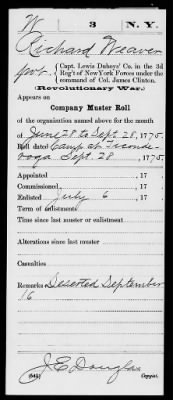 W 3 N.Y.
Richard Weaver
Pvt., Capt. Lewis Duboys' Co. in the 3d
Reg't of New York Forces under the
command of Col. James Clinton.
(Revolutionary War.)
Appears on
Company Muster Roll
of the organization named above for the month
of June 28 to Sept. 28, 1775.
Roll dated Camp at Ticonde-
roga Sept. 28, 1775.
Appointed , 17 .
Commissioned, , 17 .
Enlisted July 6 , 17 .
Term of enlistment
Time since last muster or enlistment
Alterations since last muster
Casualties
Remarks: Deserted September
16
J. E. Douglas
(545) Copyist.